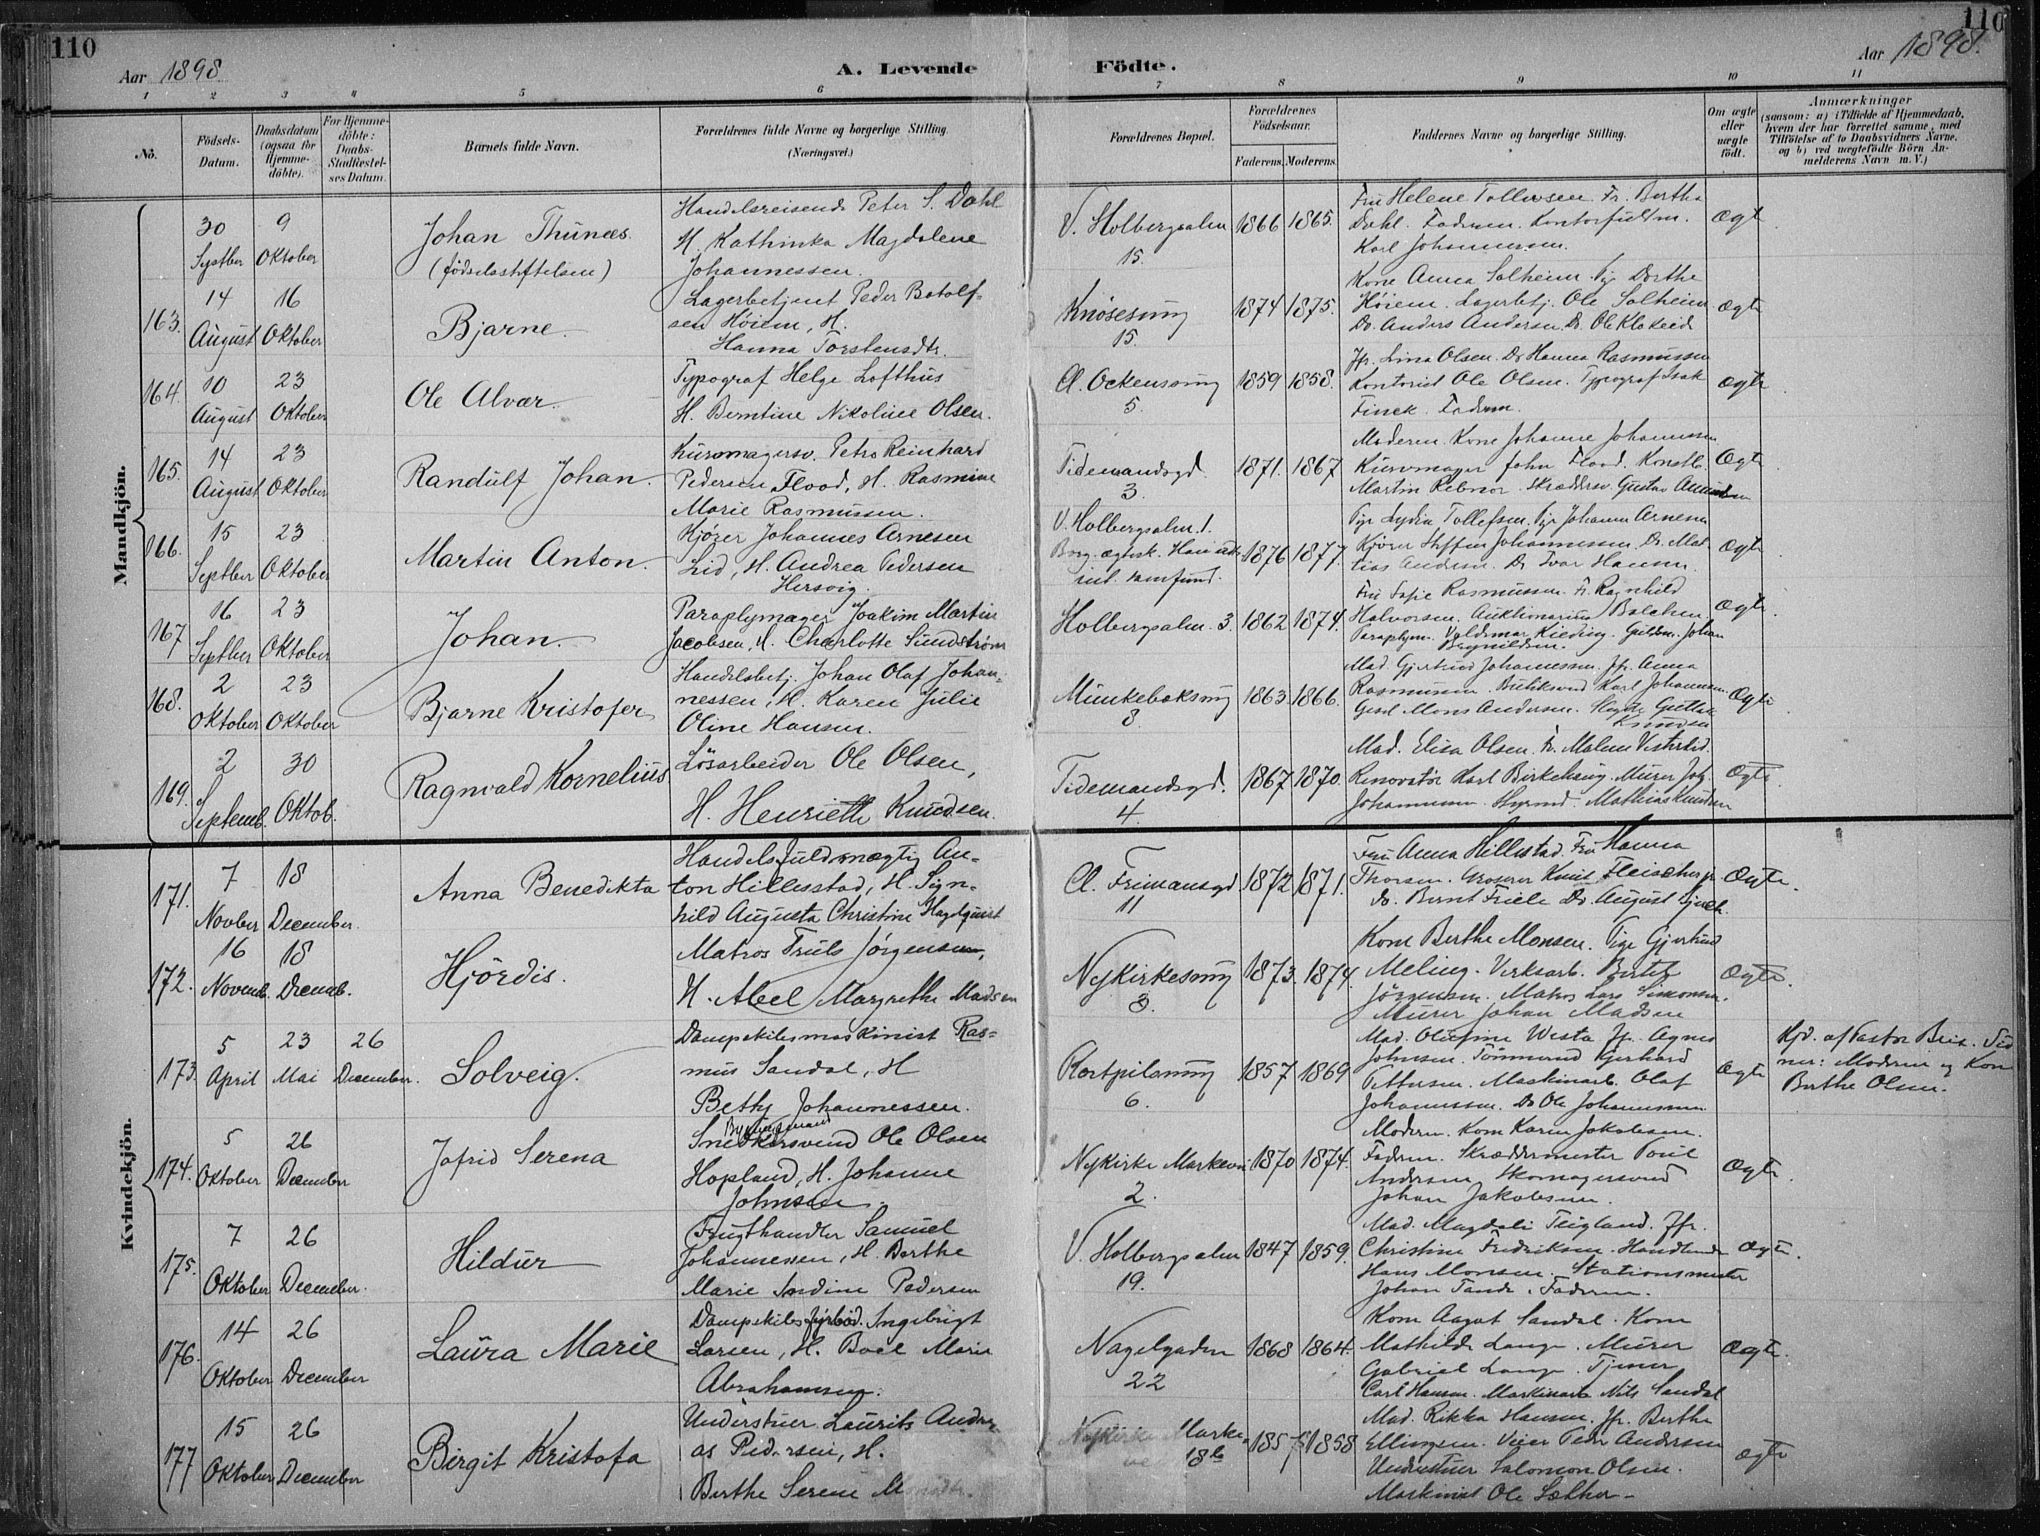 110
110
Aar 1898
A. Levende Födte.
Aar 1898.
1 2 3 4 5 6 7 8 9 10 11
No.
Födsels-Datum.
Daabsdatum (ogsaa for Hjemme-döbte).
For Hjemme-döbte: Daabs-Stadfæstel-ses Datum.
Barnets fulde Navn.
Forældrenes fulde Navne og borgerlige Stilling. (Næringsvei.)
Forældrenes Bopæl.
Forældrenes Födselsaar.
Faderens. Moderens.
Faddernes Navne og borgerlige Stilling.
Om ægte eller uægte födt.
Anmærkninger
(saasom: a) i Tilfælde af Hjemmedaab,
hvem der har forrettet samme, med
Tilföielse af to Daabsvidners Navne,
og b) ved uægtefödte Börn An-
melderens Navn m. V.)
Mandkjön.
30 Septber 9 Oktober
Johan Thunæs
(fødselsstiftelsen)
Handelsreisende Peter S. Dahl
H. Kathinka Magdalene
Johannessen.
V. Holbergsalm 15
1866 1865.
Fru Helene Tollevsen. Fr. Bertha
Dahl. Faderen. Kontorfuldm.
Karl Johannesen.
Ægt
163. 14 August 16 Oktober
Bjarne.
Lagerbetjent Peder Botolf-
sen Høiem, H.
Hanna Torstensdtr.
Knøsesmug 15.
1874 1875.
Kone Anna Solheim. Pige Dorthe
Høiem. Lagerbetj. Ole Solheim
Do. Anders Andersen. Do. Ole
Ægte
164. 10 August 23 Oktober
Ole Alvar.
Typograf Helge Lofthus
H. Berntine Nikoline Olsen.
Cl. Ockensmug 5.
1859 1858.
Jfr. Lina Olsen. Do Hanna Rasmussen
Kontorist Ole Olsen. Typograf Isak
Finck. Faderen.
Ægte
165. 14 August 23 Oktober
Randulf Johan.
Kurvmagersv. Petro Reinhard
Pedersen Flood, H. Rasmine
Marie Rasmussen.
Tidemandsgd. 3.
1871. 1867
Moderen. Kone Johanne Johannessen
Kurvmager John Flood. Konstb.
Martin Rebnor. Skræddersv. Gustav
Ægte
166. 15 Septber 23 Oktober
Martin Anton.
Kjører Johannes Arnesen
Lid, H. Andrea Pedersen
Hersvig.
V. Holbergsalm. 1.
Borg. ægtsk.
samfund.
1876 1877.
Pige Lydia Tollefsen. Pige Johanne Arnesen
Kjører Steffen Johannessen. Do. Mat-
tias Andersen. Do Ivar Hansen.
Ægte
167 16 Septber 23 Oktober
Johan.
Paraplymager Joakim Martin
Jacobsen, H. Charlotte Sundstrøm
Holbergsalm. 3.
1862 1874.
Fru Sofie Rasmussen. Fr. Ragnhild
Halvorsen. Auktionarius
Paraplym. Valdemar Guldsm. Johan
Brynildsen.
Ægte.
168. 2 Oktober 23 Oktober
Bjarne Kristofer
Handelsbetj. Johan Olaf Johan-
nessen, H. Karen Julie
Oline Hansen.
Munkebæksmug 8.
1863 1866.
Mad. Gjertrud Johannessen. Jfr. Anna
Rasmussen. Butiksvend Karl Johannesen.
Gesel Mons Andersen.
Knudsen
Ægte
169. 2 Septemb. 30 Oktob.
Ragnvald Kornelius
Løsarbeider Ole Olsen,
H. Henriette Knudsen.
Tidemandsgd. 4.
1867 1870.
Mad. Elisa Olsen. Fr. Malene
Renovatør Karl Birkehaug. Murer Joh.
Johannessen. Styrmd. Mathias Knudsen
Ægte.
Kvindekjön.
171. 7 Novber 18 December.
Anna Benedikta
Handelsfuldmægtig An-
ton Hillestad, H. Sign-
hild Augusta Christine Hagelquist
Cl. Frimansgd 11
1872 1871.
Fru Anna Hillestad. Fru Hanna
Thorsen. Grosserer Knut Fleischer jr
Do. Bernt Friele Do. August
Ægte.
172. 16 Novemb. 18 Decemb.
Hjördis.
Matros Truls Jörgensen,
H. Abel Margrethe Madsen
Nykirkesmug 3.
1873. 1874.
Kone Berthe Monsen. Pige Gjertrud
Meling. Verksarb. Bertil
Jörgensen. Matros Lars Simonsen.
Murer Johan Madsen
Ægte.
173. 5 April 23 Mai 26 December.
Solveig.
Dampskibsmaskinist Ras-
mus Sandal, H
Betty Johannessen.
Kortpilsmug 6.
1857 1869
Mad. Olufine Westa Jfr. Agnes
Johnsen. Tönmand Gerhard
Pettersen. Maskinarb. Olaf
Johannessen. Do Ole Johannessen
Ægte
Hjd. af Pastor Brix. Vid
ner: Moderen og Kone
Berthe Olsen.
174. 5 Oktober 26 December
Jofrid Serena
Snedkersvend Ole Olsen
Hopland, H. Johanne
Johnsen.
Nykirke Markevei 2.
1870 1874.
Moderen. Kone Karen Jakobsen.
Faderen. Skræddermester Poul
Andersen Skomagersvend
Johan Jakobsen.
Ægte.
175. 7 Oktober 26 December.
Hildur
Frugthandler Samuel
Johannessen, H. Berthe
Marie Andine Pedersen
V. Holbergsalm 19.
1847 1859.
Mad. Magdali Teigland. Jfr.
Christine Fredriksen. Handlende
Hans Monsen. Stationsmester
Johan Tande. Faderen.
Ægte.
176. 14 Oktober 26 December
Laura Marie
Dampskibsfyrbød. Ingebrigt
Larsen, H. Boel Marie
Abrahamsen.
Nagelgaden 22
1868 1864.
Kone Aagot Sandal. Kone
Mathilde Lange. Murer
Gabriel Lange. Tjener
Carl Hansen. Maskinarb Nils Sandal
Ægte.
177 15 Oktober 26 December
Birgit Kristofa
Understuer Laurits Andre-
as Pedersen, H.
Berthe Serene
Nykirke Marke 18b
1857 1858
Mad. Rikka Hansen. Jfr. Berthe
Ellingsen. Veier Peder Andersen
Understuer Salomon Olsen.
Maskinist Ole Sæther
Ægte